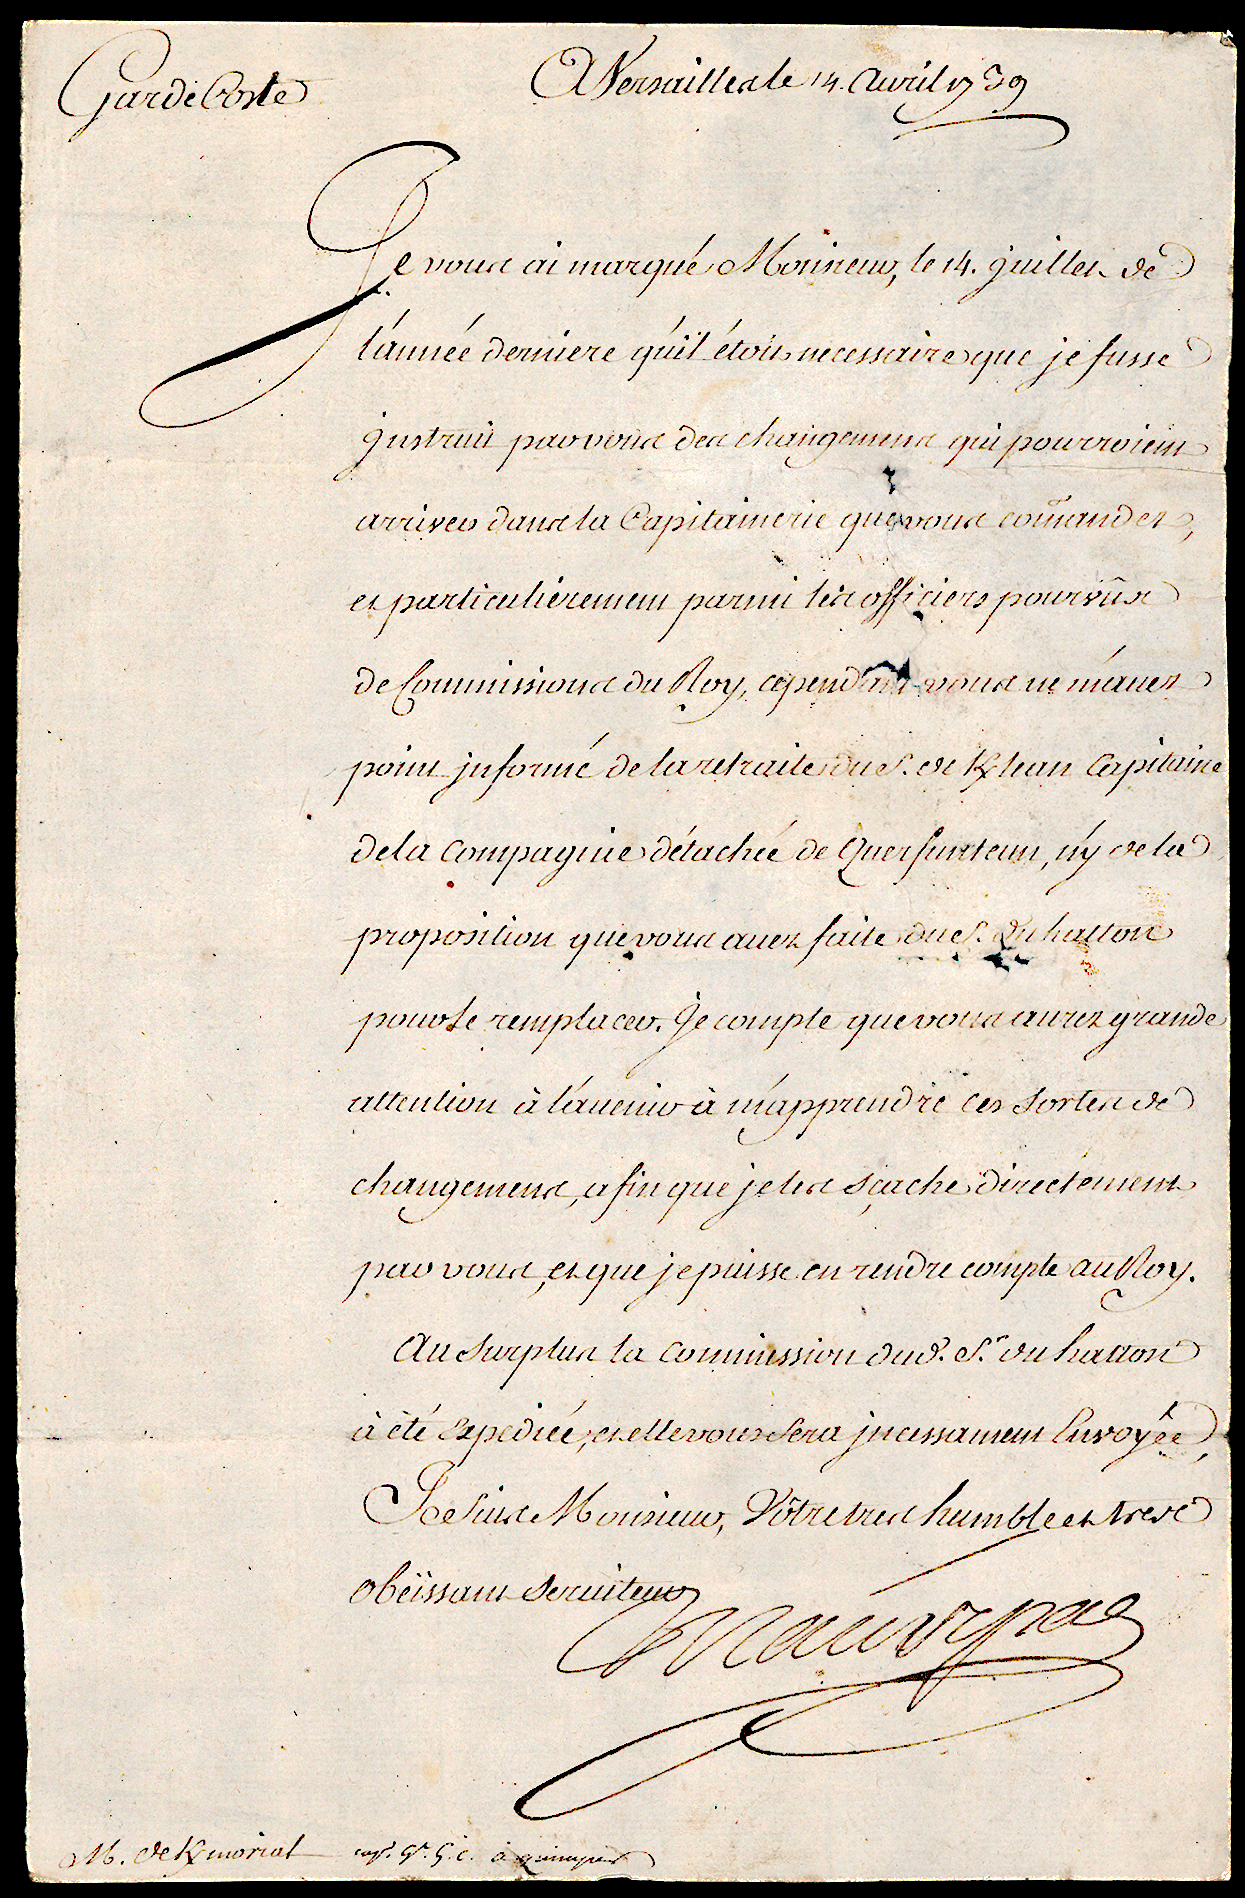 Garde Coste
A Versailles le 14. Avril 1739
Je vous ai marqué, Monsieur, le 14. juillet de
l'année derniere qu'il étoit necessaire que je fusse
jnstruit par vous des changemens qui pourroient
arriver dans la Capitainerie que vous com̃andez,
et particulièrement parmi les officiers pourvûs
de Commissions du Roy, cependant vous ne m'avez
point jnformé de la retraite du S. de K/lean Capitaine
de la Compagnie détachée de Quersunteun, ny de la
proposition que vous avez faite du S. du hatton
pour le remplacer. Je compte que vous aurez grande
attention à l'avenir à m'apprendre ces sortes de
changemens, afin que je les sçache directement
par vous, et que je puisse en rendre compte au Roy.
Au surplus la Commission dud. S.r du hatton
à été Expediée, et elle vous sera jncessament Envoyée,
Je suis Monsieur, Vôtre tres humble et tres
obeïssant serviteur
Maurepas
M. de K/morial cap.e G.al G. C. à quimper